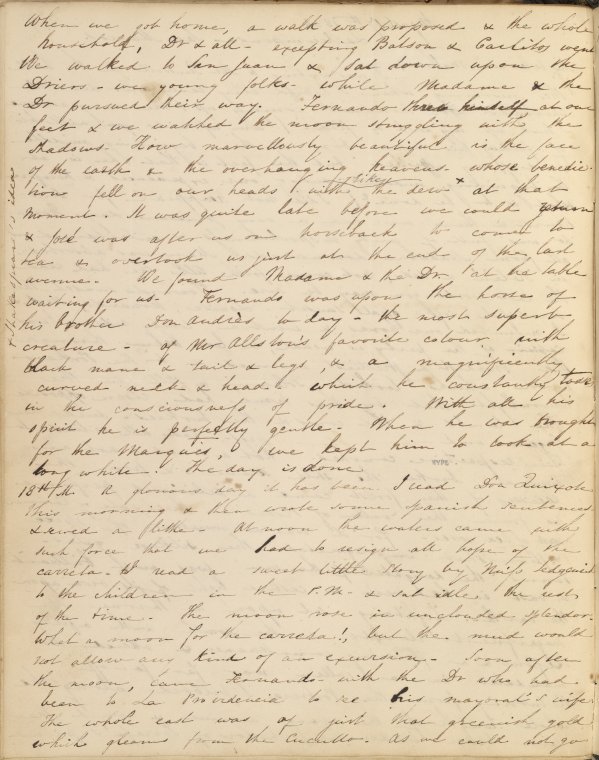 When we got home, a walk was proposed & the whole
household, Dr & all - excepting Batson & Carlitos went
We walked to San Juan & sat down upon the
Driers - we young folks - while Madame & the
Dr pursued their way. Fernando threw himself at our
feet & we watched the moon struggling with the
shadows. How marvellously beautiful is the face
of the earth & the overhanging heavens whose benedic-
tion fell on our heads with the dew x at that
like
moment. It was quite late before we could return
& José was after us on horseback to come to
tea & overtook us just at the end of the last
avenue. We found Madame & the Dr at the table
waiting for us. Fernando was upon the horse of
his brother Don Andrès to day - the most superb
creature - of Mr Allston's favorite colour, with
black mane & tail & legs, & a magnificently
curved neck & head which he constantly toss
in the consciousness of pride. With all his
spirit he is perfectly gentle. When he was brought
for the Marquis, we kept him to look at a
long while. The day is done
NYPL
18th M. A glorious day it has been. I read Don Quixote
this morning & then wrote some Spanish sentences
& sewed a little. At noon the waters came with
such force that we had to resign all hope of the
carreta. I read a sweet little story by Miss Sedgwick
to the children in the P.M. & sat idle the rest
of the time. The moon rose in unclouded splendor.
What a moon for the carreta!, but the mud would
not allow any kind of an excursion. Soon after
the moon, came Fernando with the Dr who had
been to La Providencia to see his mayoral's wife
The whole east was of just that greenish gold
which gleams from the cucullo. As we could not go
x Shakespeare's idea